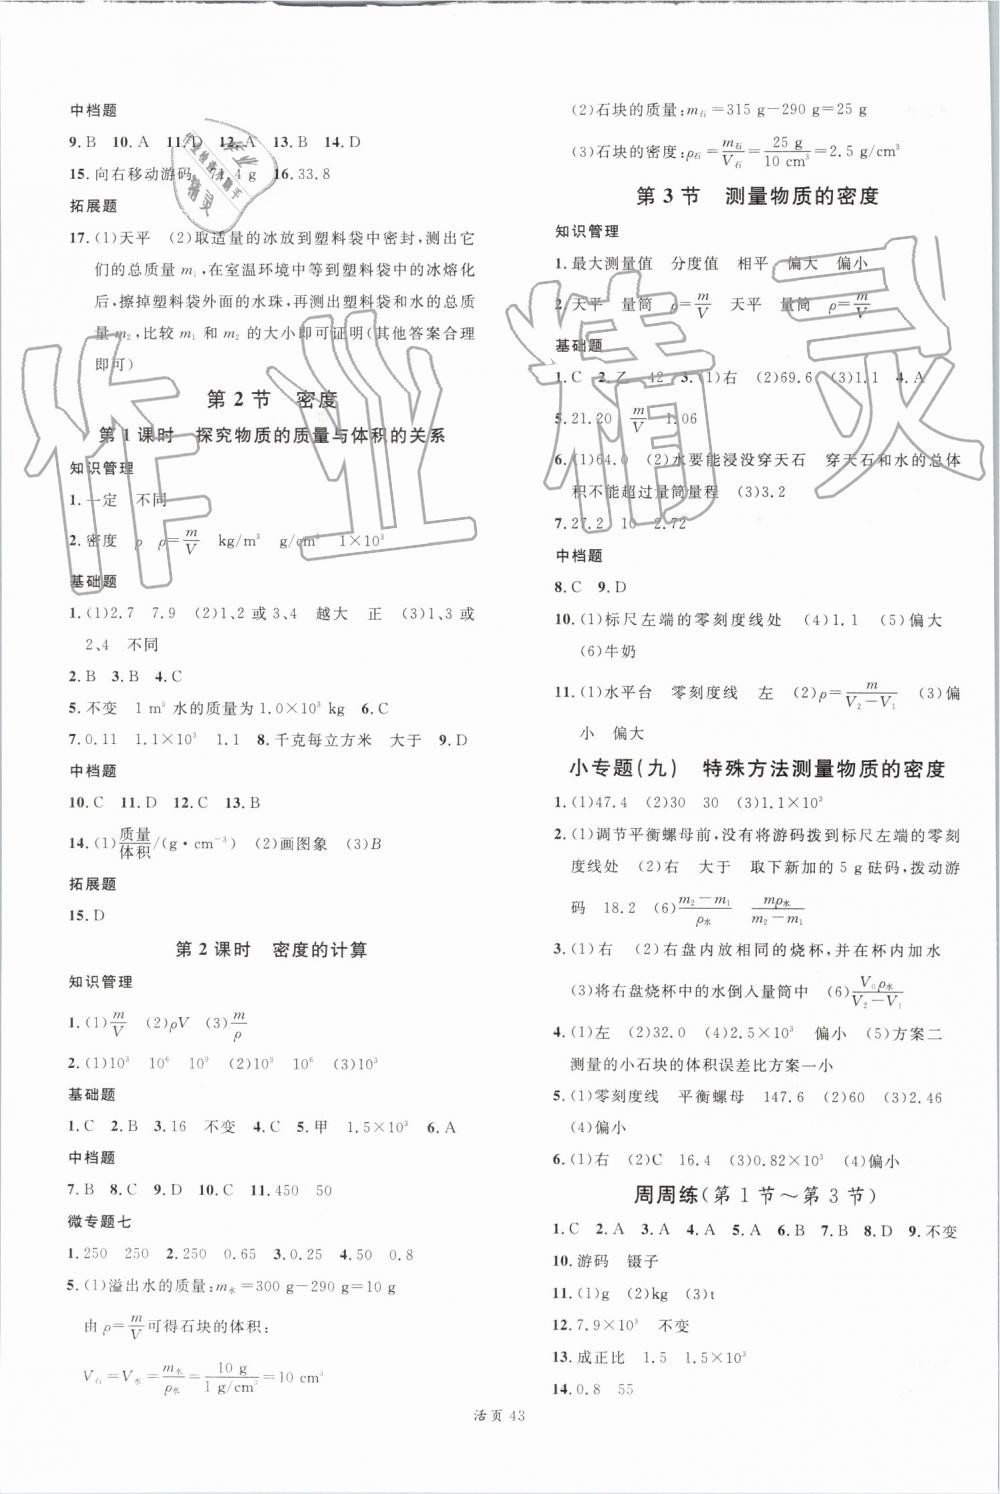 中档题
9.B 10.A 11.D 12.A 13.B 14.D
15.向右移动游码 4 g 16.33.8
拓展题
17.(1)天平 (2)取适量的冰放到塑料袋中密封,测出它
们的总质量 m₁,在室温环境中等到塑料袋中的冰熔化
后,擦掉塑料袋外面的水珠,再测出塑料袋和水的总质
量 m₂,比较 m₁ 和 m₂ 的大小即可证明(其他答案合理
即可)
第 2 节 密度
第 1 课时 探究物质的质量与体积的关系
知识管理
1.一定 不同
2.密度 ρ ρ=m/V kg/m³ g/cm³ 1×10³
基础题
1.(1)2.7 7.9 (2)1、2 或 3、4 越大 正 (3)1、3 或
2、4 不同
2.B 3.B 4.C
5.不变 1 m³ 水的质量为 1.0×10³ kg 6.C
7.0.11 1.1×10³ 1.1 8.千克每立方米 大于 9.D
中档题
10.C 11.D 12.C 13.B
14.(1)质量/体积/(g·cm⁻³) (2)画图象 (3)B
拓展题
15.D
第 2 课时 密度的计算
知识管理
1.(1)m/V (2)ρV (3)m/ρ
2.(1)10³ 10⁶ 10⁹ (2)10³ 10⁶ (3)10³
基础题
1.C 2.B 3.16 不变 4.C 5.甲 1.5×10³ 6.A
中档题
7.B 8.C 9.D 10.C 11.450 50
微专题七
1.250 250 2.250 0.65 3.0.25 4.50 0.8
5.(1)溢出水的质量:m水=300 g-290 g=10 g
由 ρ=m/V 可得石块的体积:
V石=V水=m水/ρ水=10 g/1 g/cm³=10 cm³
(2)石块的质量:m石=315 g-290 g=25 g
(3)石块的密度:ρ石=m石/V石=25 g/10 cm³=2.5 g/cm³
第 3 节 测量物质的密度
知识管理
1.最大测量值 分度值 相平 偏大 偏小
2.天平 量筒 ρ=m/V 天平 量筒 ρ=m/V
基础题
1.C 2.乙 42 3.(1)右 (2)69.6 (3)1.1 4.A
5.21.20 m/V 1.06
6.(1)64.0 (2)水要能浸没穿天石 穿天石和水的总体
积不能超过量筒量程 (3)3.2
7.27.2 10 2.72
中档题
8.C 9.D
10.(1)标尺左端的零刻度线处 (4)1.1 (5)偏大
(6)牛奶
11.(1)水平台 零刻度线 左 (2)ρ=m/V₂-V₁ (3)偏
小 偏大
小专题(九) 特殊方法测量物质的密度
1.(1)47.4 (2)30 30 (3)1.1×10³
2.(1)调节平衡螺母前,没有将游码拨到标尺左端的零刻
度线处 (2)右 大于 取下新加的 5 g 砝码,拨动游
码 18.2 (6)m₂-m₁/ρ水 mρ水/m₂-m₁
3.(1)右 (2)右盘内放相同的烧杯,并在杯内加水
(3)将右盘烧杯中的水倒入量筒中 (6)V₀ρ水/V₂-V₁
4.(1)左 (2)32.0 (4)2.5×10³ 偏小 (5)方案二
测量的小石块的体积误差比方案一小
5.(1)零刻度线 平衡螺母 147.6 (2)60 (3)2.46
(4)偏小
6.(1)右 (2)C 16.4 (3)0.82×10³ (4)偏小
周周练(第 1 节~第 3 节)
1.C 2.A 3.A 4.A 5.A 6.B 7.B 8.D 9.不变
10.游码 镊子
11.(1)g (2)kg (3)t
12.7.9×10³ 不变
13.成正比 1.5 1.5×10³
14.0.8 55
活页 43
作业精灵